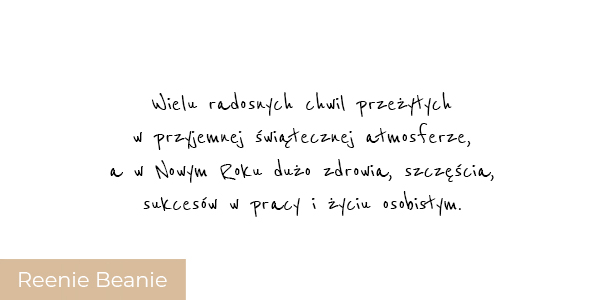 Wielu radosnych chwil przeżytych
w przyjemnej świątecznej atmosferze,
a w Nowym Roku dużo zdrowia, szczęścia,
sukcesów w pracy i życiu osobistym.
Reenie Beanie